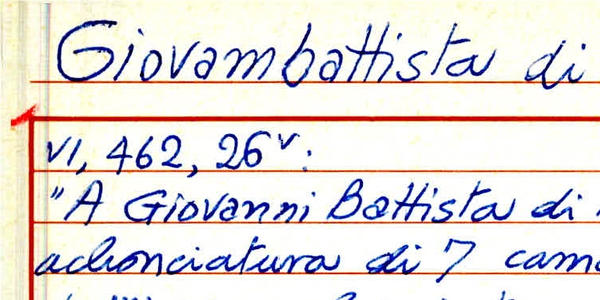 Giovambattista di
VI, 462, 26v:
"A Giovanni Battista di
achonciatura di 7